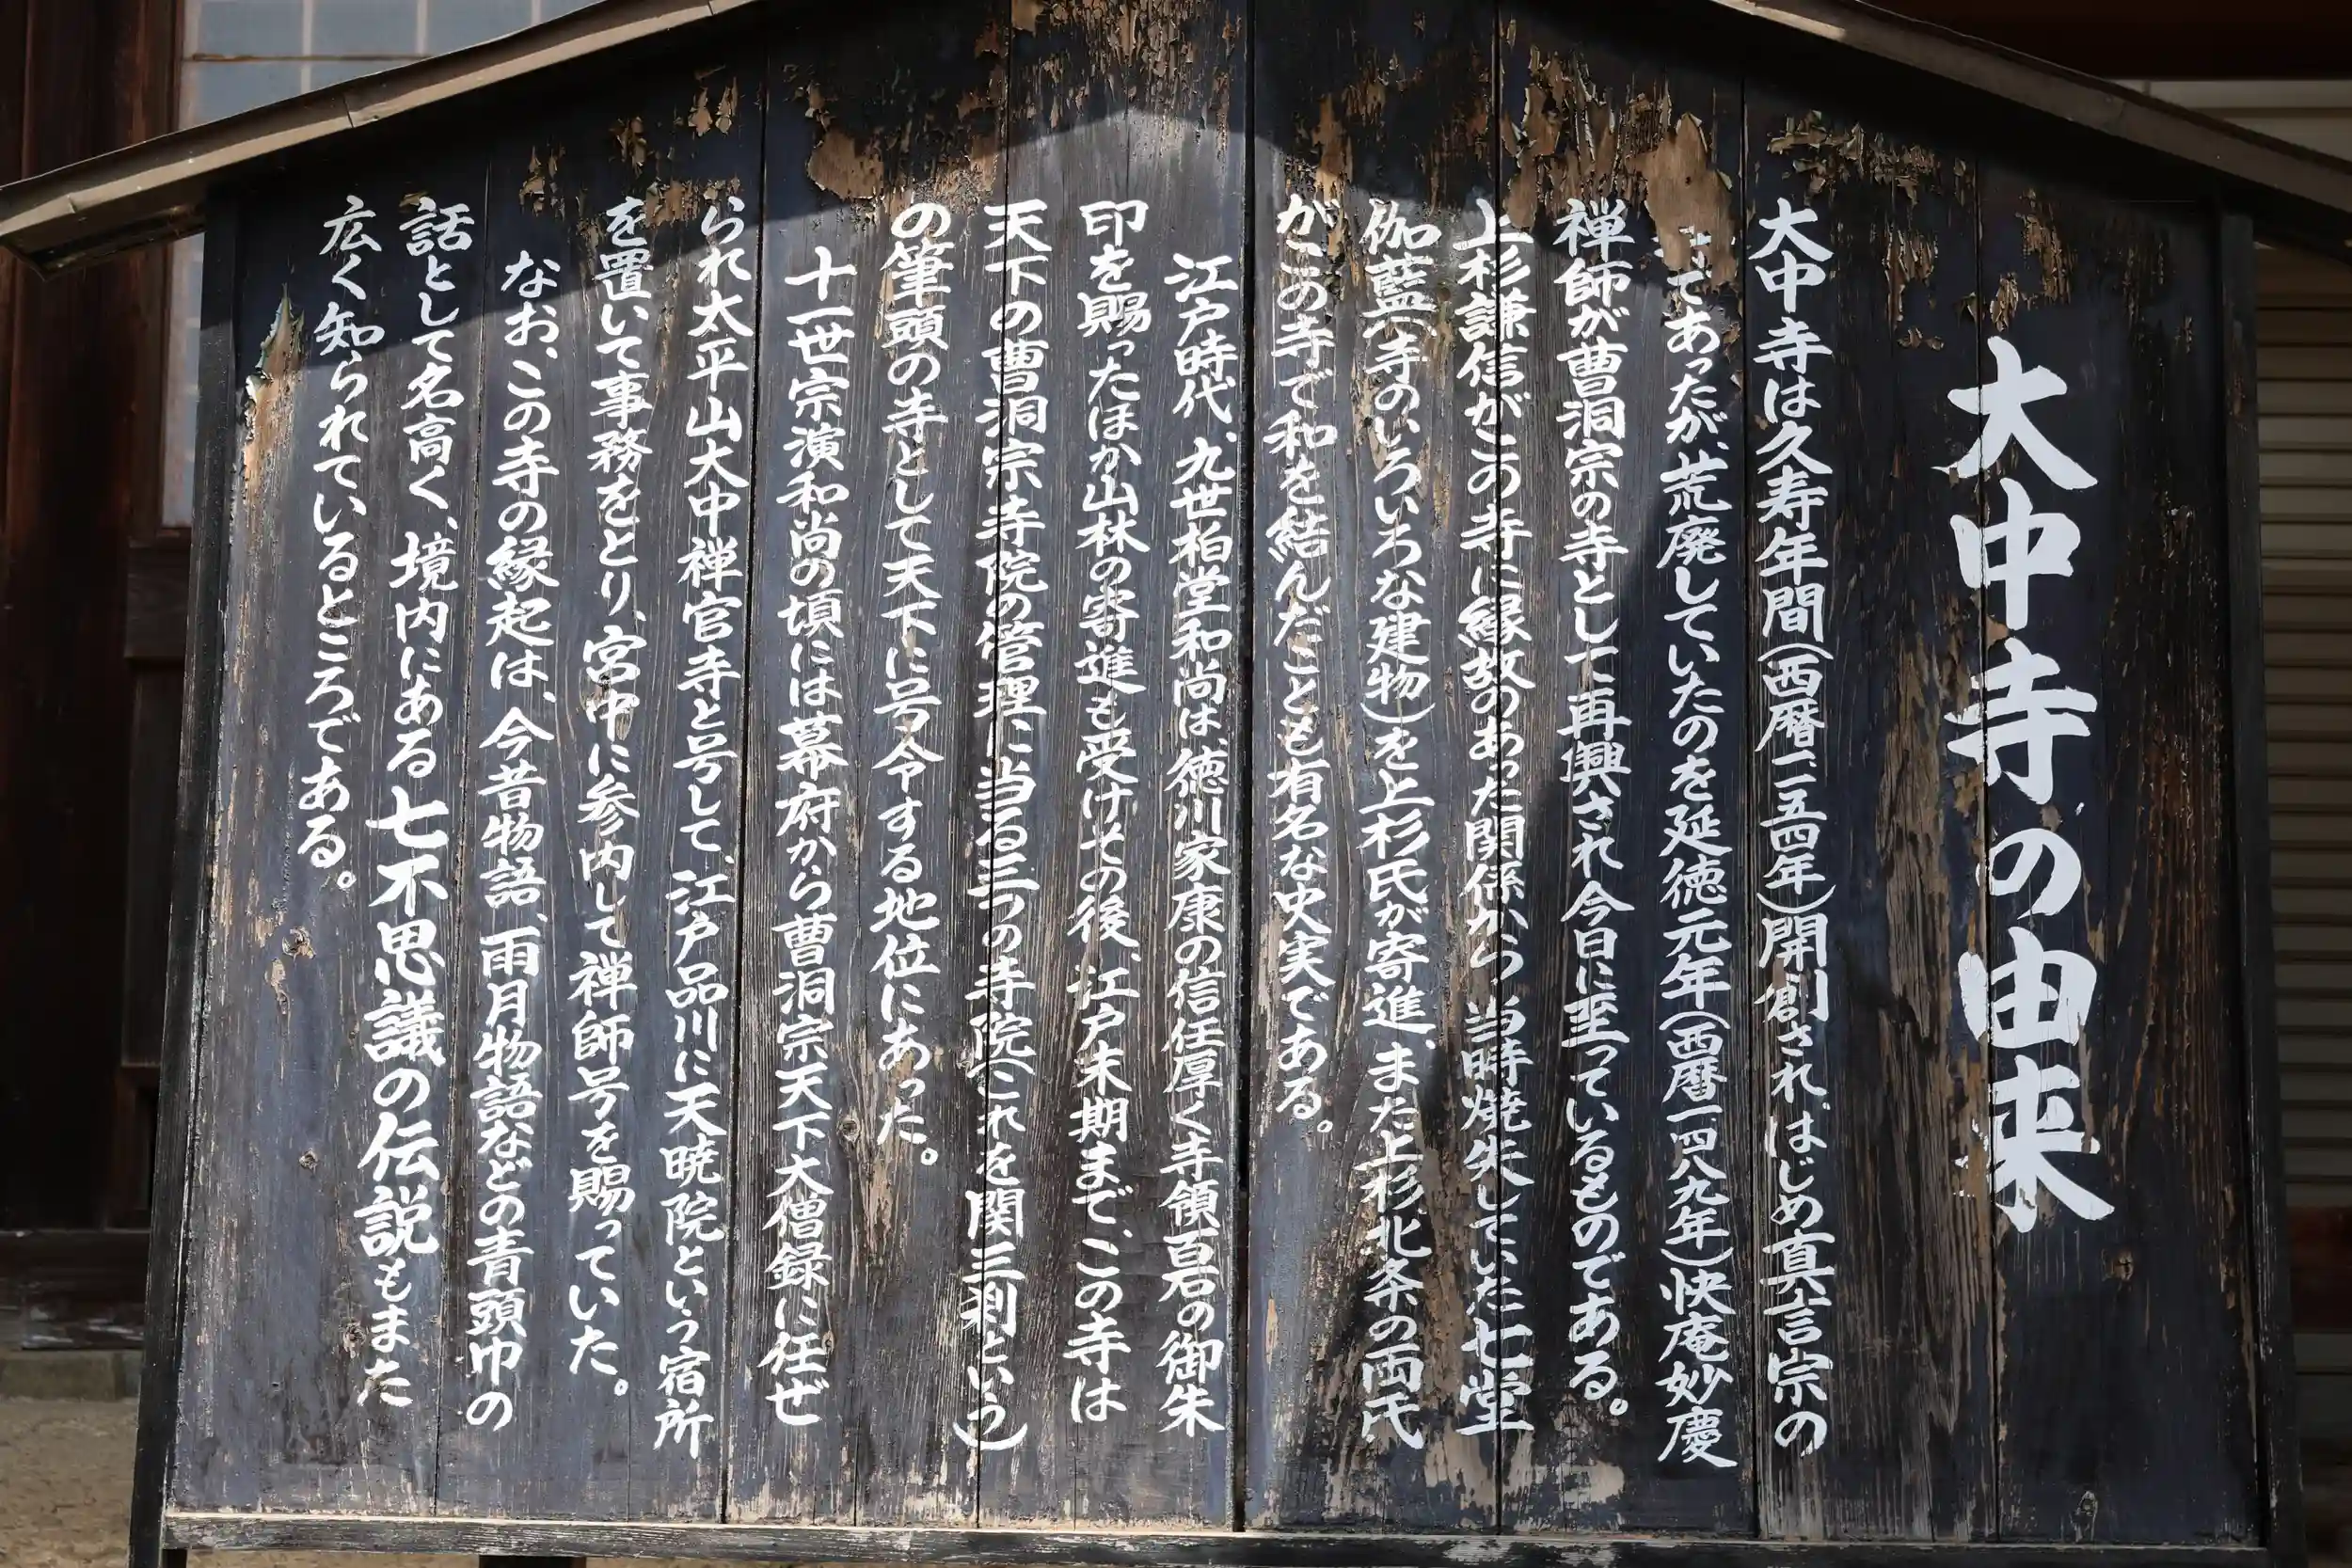 大中寺の由来
大中寺は久寿年間(西暦一一五四年)開創され、はじめ真言宗の
てあったが、荒廃していたのを延徳元年(西暦一四八九年)快庵妙慶
禅師が曹洞宗の寺として再興され今日に至っているものである。
上杉謙信がこの寺に縁故のあった関係から当時焼失していた七堂
伽藍(寺のいろいろな建物)を上杉氏が寄進、また上杉北条の両氏
がこの寺で和を結んだことも有名な史実である。
江戸時代、九世柏堂和尚は、徳川家康の信任厚く寺領百石の御朱
印を賜ったほか山林の寄進も受けその後、江戸末期まで、この寺は
天下の曹洞宗寺院の管理に当る三つの寺院(これを関三刹という)
の筆頭の寺として天下に号令する地位にあった。
十一世宗演和尚の頃には幕府から曹洞宗天下大僧録に任ぜ
られ太平山大中禅官寺と号して、江戸品川に天暁院という宿所
を置いて事務をとり、宮中に参内して禅師号を賜っていた。
なお、この寺の縁起は、今昔物語、雨月物語などの青頭巾の
話として名高く、境内にある七不思議の伝説もまた
広く知られているところである。